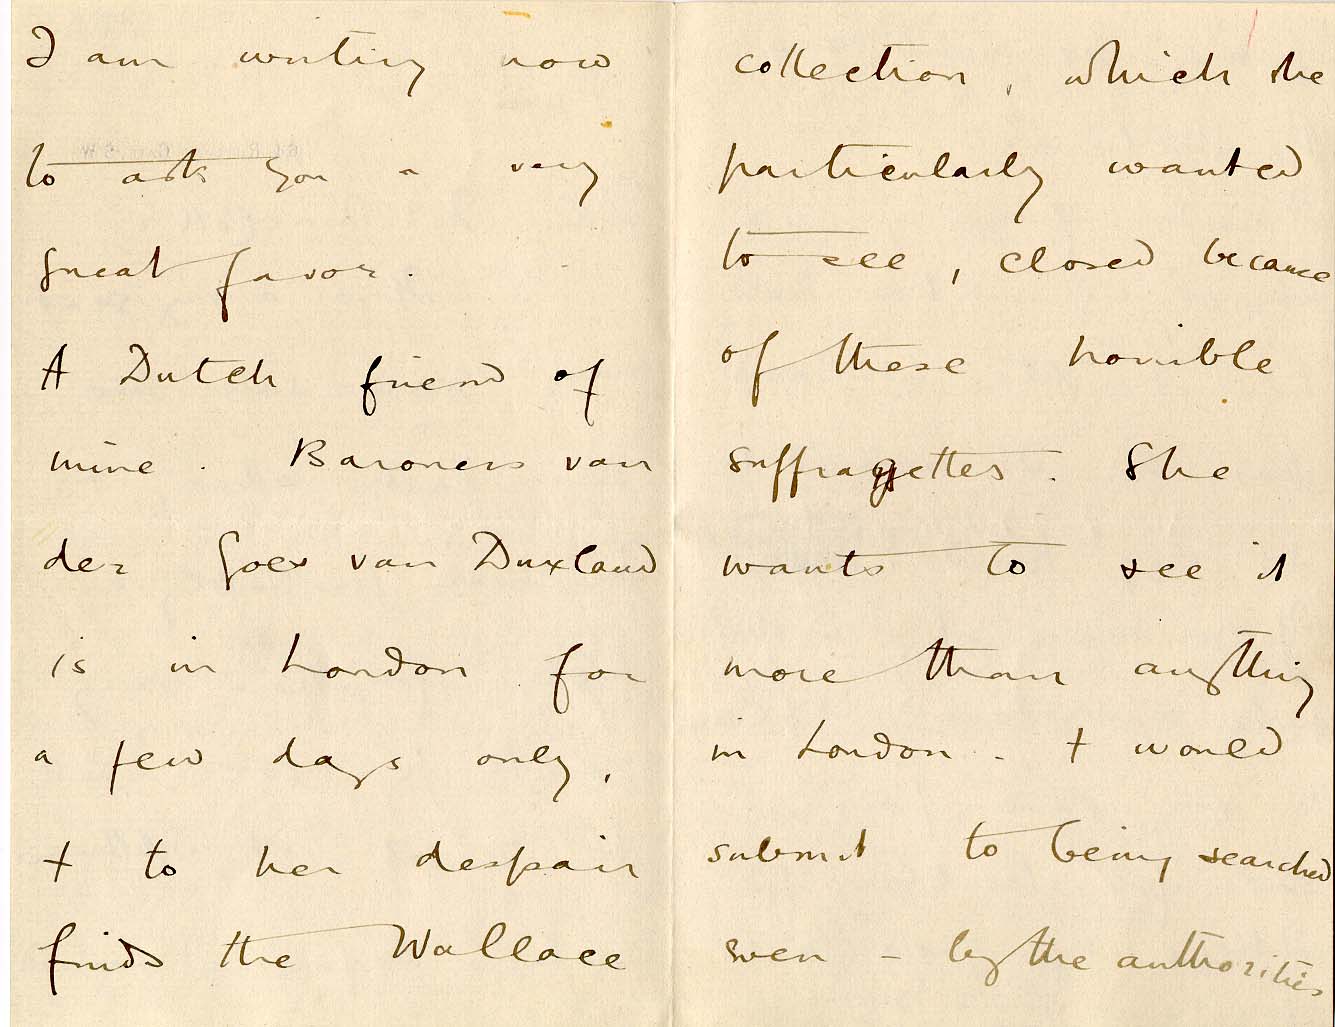 I am writing now
to ask you a very
great favor.
A Dutch friend of
mine. Baroness van
der Goes van Duxland
is in London for
a few days only,
+ to her despair
finds the Wallace
collection, which she
particularly wanted
to see, closed because
of these horrible
suffragettes. She
wants to see it
more than anything
in London - + would
submit to being searched
even - by the authorities